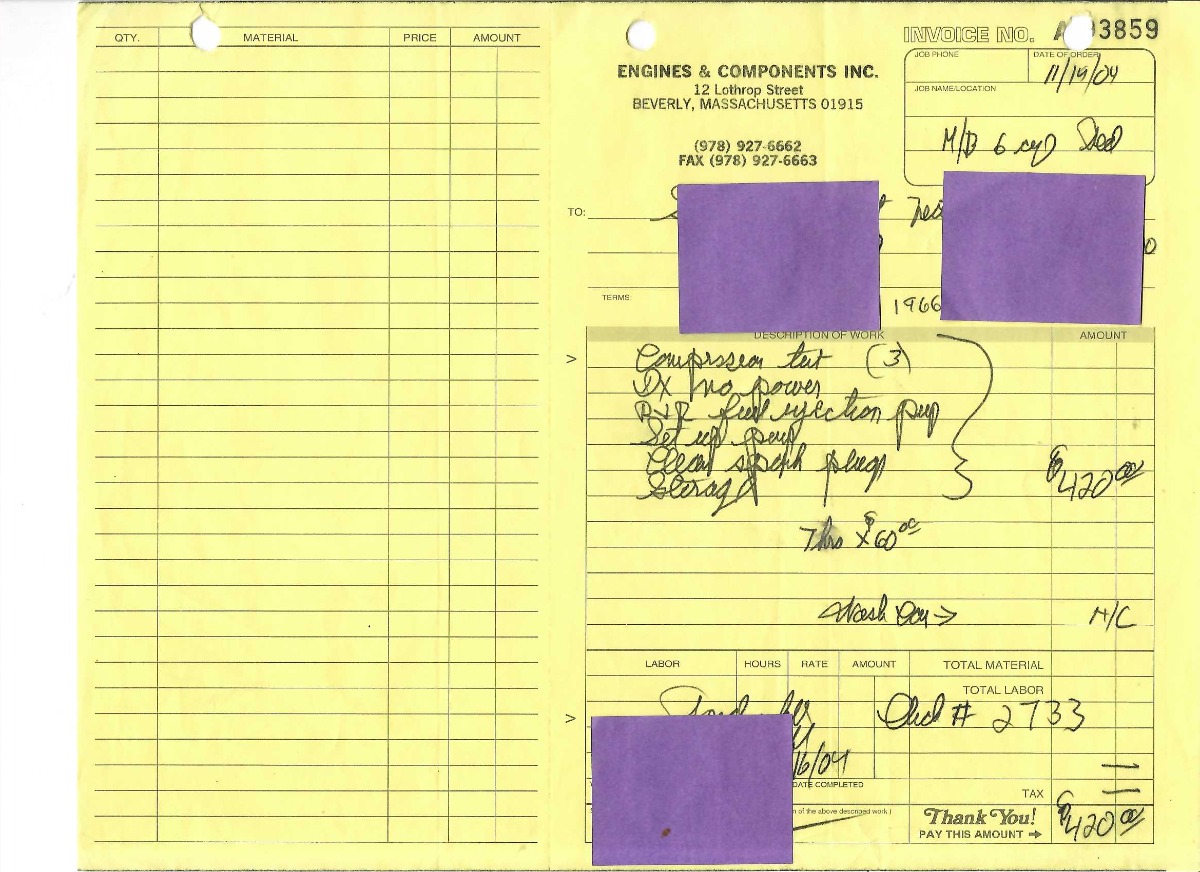 QTY. MATERIAL PRICE AMOUNT
INVOICE NO. 3859
JOB PHONE DATE OF ORDER
11/19/04
ENGINES & COMPONENTS INC.
12 Lothrop Street
BEVERLY, MASSACHUSETTS 01915
JOB NAME/LOCATION
M/B 6 cyl
(978) 927-6662
FAX (978) 927-6663
TO:
TERMS:
1966
DESCRIPTION OF WORK AMOUNT
Comprssion test (3)
DX no power
R&R fuel injection pup
Set up pup
Clean spark plugs
Storage
$420 00
7 hrs x $60 00
Wash Car → N/C
LABOR HOURS RATE AMOUNT TOTAL MATERIAL
TOTAL LABOR
Check # 2733
16/04
DATE COMPLETED
TAX
n of the above described work )
Thank You!
PAY THIS AMOUNT → $420 00